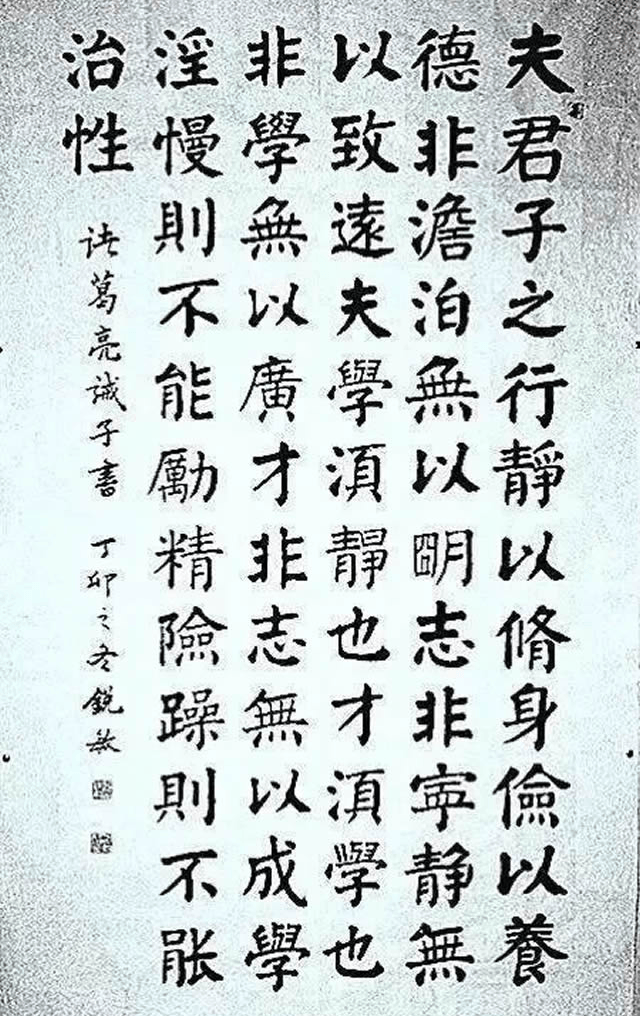 夫君子之行靜以脩身儉以養
德非澹泊無以朙志非寧靜無
以致遠夫學湏靜也才湏學也
非學無以廣才非志無以成學
淫慢則不能勵精險躁則不能
治性
諸葛亮誡子書 丁卯之冬銳敏